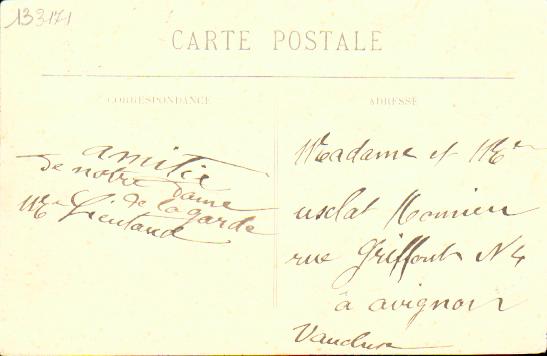 13317-1
CARTE POSTALE
CORRESPONDANCE
ADRESSE
amitié
de notre Dame
de la garde
Mme Lieutaud
Madame et Mr
usclat
rue N 4
à avignon
Vaucluse